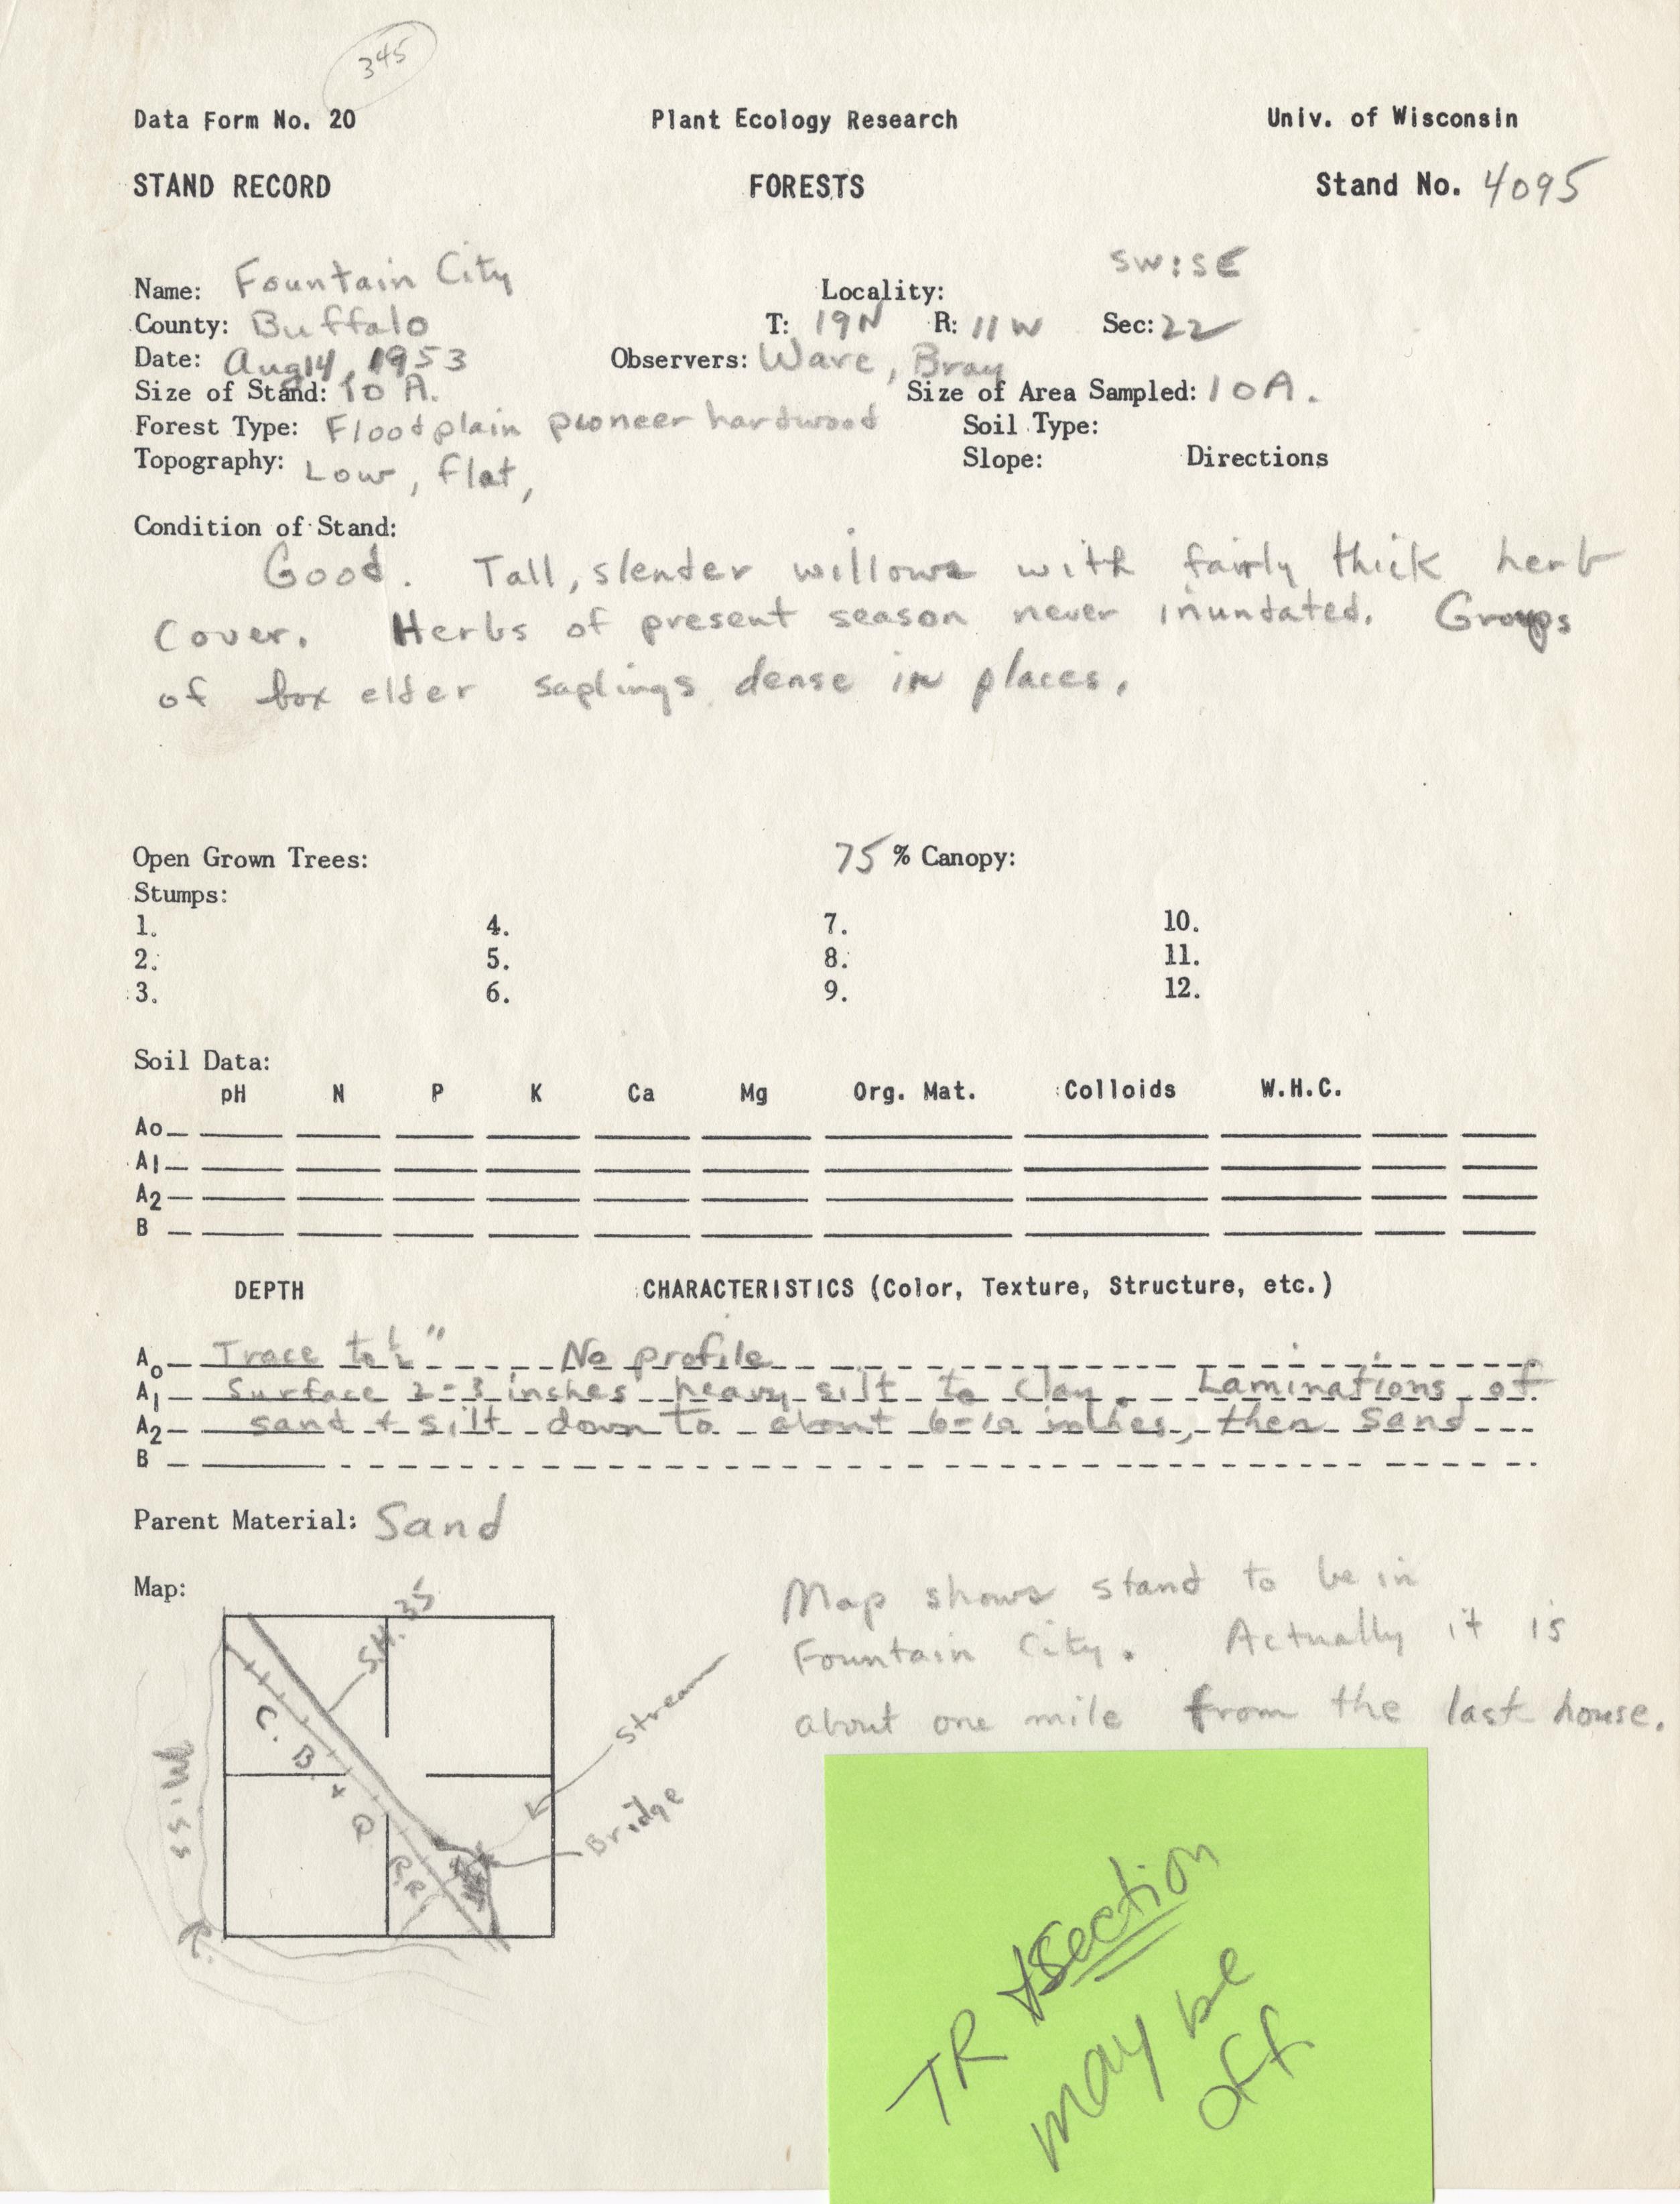 345
Data Form No. 20 Plant Ecology Research Univ. of Wisconsin
STAND RECORD FORESTS Stand No. 4095
SW:SE
Name: Fountain City Locality:
County: Buffalo T: 19N R: 11W Sec: 22
Date: Aug 14, 1953 Observers: Ware, Bray
Size of Stand: 10 A. Size of Area Sampled: 10A.
Forest Type: Floodplain pioneer hardwood Soil Type:
Topography: Low, flat, Slope: Directions
Condition of Stand:
Good. Tall, slender willows with fairly thick herb
cover. Herbs of present season never inundated. Groups
of box elder saplings dense in places.
Open Grown Trees: 75 % Canopy:
Stumps:
1. 4. 7. 10.
2. 5. 8. 11.
3. 6. 9. 12.
Soil Data:
pH N P K Ca Mg Org. Mat. Colloids W.H.C.
Ao
A1
A2
B
DEPTH CHARACTERISTICS (Color, Texture, Structure, etc.)
Ao Trace to ½" No profile
A1 Surface 2-3 inches heavy silt to clay. Laminations of
A2 sand + silt down to about 6-10 inches, then sand
B
Parent Material: Sand
Map:
S.H. 35
C. B. + Q. R.R.
Miss. R.
Stream
Bridge
Map shows stand to be in
Fountain City. Actually it is
about one mile from the last house.
TR & Section
may be
off